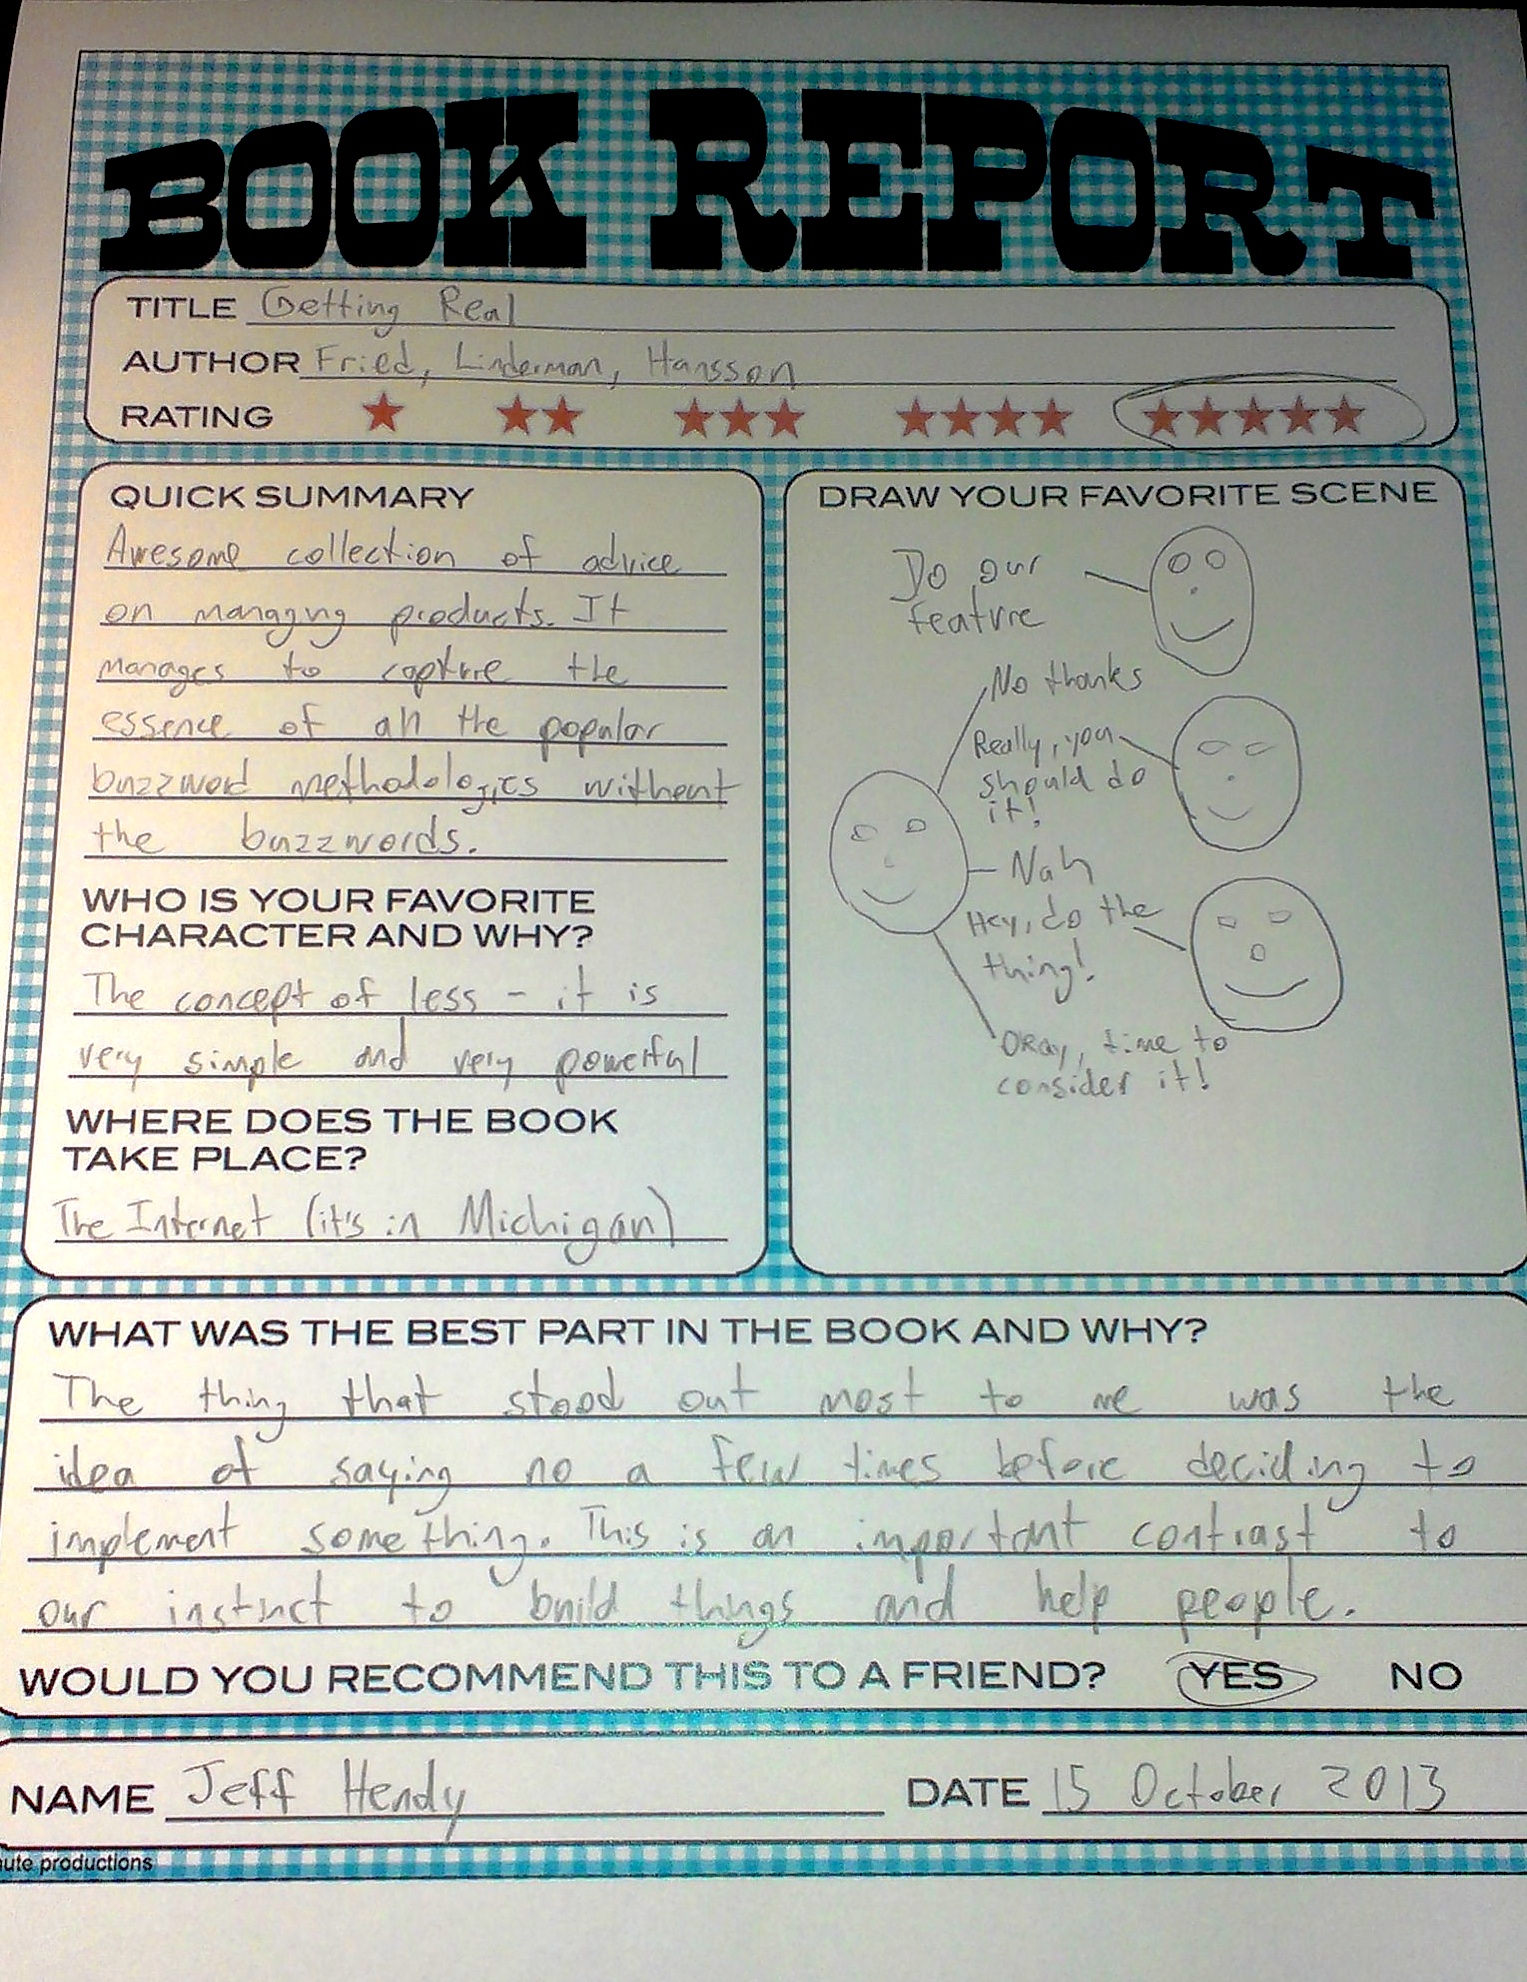 BOOK REPORT
TITLE Getting Real
AUTHOR Fried, Linderman, Hansson
RATING
QUICK SUMMARY
Awesome collection of advice
on managing products. It
manages to capture the
essence of all the popular
buzzword methodologies without
the buzzwords.
WHO IS YOUR FAVORITE
CHARACTER AND WHY?
The concept of less - it is
very simple and very powerful
WHERE DOES THE BOOK
TAKE PLACE?
The Internet (it's in Michigan)
DRAW YOUR FAVORITE SCENE
Do our
feature
No thanks
Really, you
should do
it!
Nah
Hey, do the
thing!
Okay, time to
consider it!
WHAT WAS THE BEST PART IN THE BOOK AND WHY?
The thing that stood out most to me was the
idea of saying no a few times before deciding to
implement something. This is an important contrast to
our instinct to build things and help people.
WOULD YOU RECOMMEND THIS TO A FRIEND? YES NO
NAME Jeff Hendy DATE 15 October 2013
ute productions